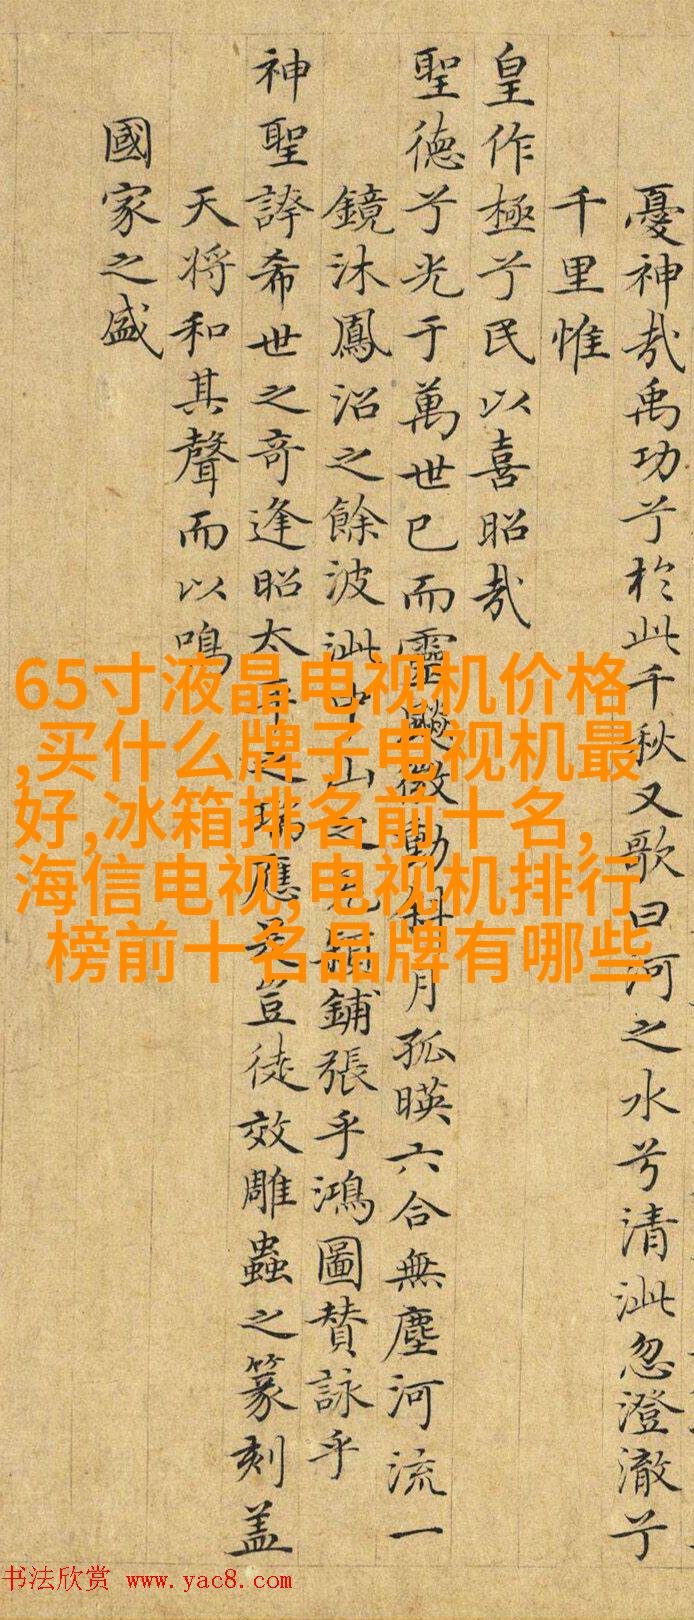 憂神哉禹功兮於此千秋又歌曰河之水兮清泚忽澄澈兮
千里惟
皇作極兮民以喜昭哉
聖德兮光于萬世已而靈飈微動斜月孤暎六合無塵河流一
鏡沐鳳沼之餘波泚中山之兔鋪張乎鴻圖賛詠乎
神聖誇希世之奇逢昭太平之瑞應夫豈徒效雕蟲之篆刻盖
天将和其聲而以鳴
國家之盛
65寸液晶电视机价格
,买什么牌子电视机最
好,冰箱排名前十名,
海信电视,电视机排行
榜前十名品牌有哪些
书法欣赏 www.yac8.com